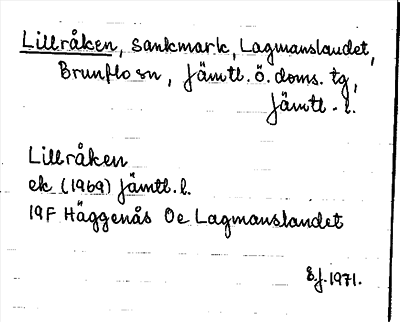 Lillråken, Sankmark, Lagmanslandet,
Brunflo sn, Jämtl. ö. doms. tg,
Jämtl. l.
Lillråken
ek (1969) Jämtl. l.
19F Häggenås 0e Lagmanslandet
E.J. 1971.